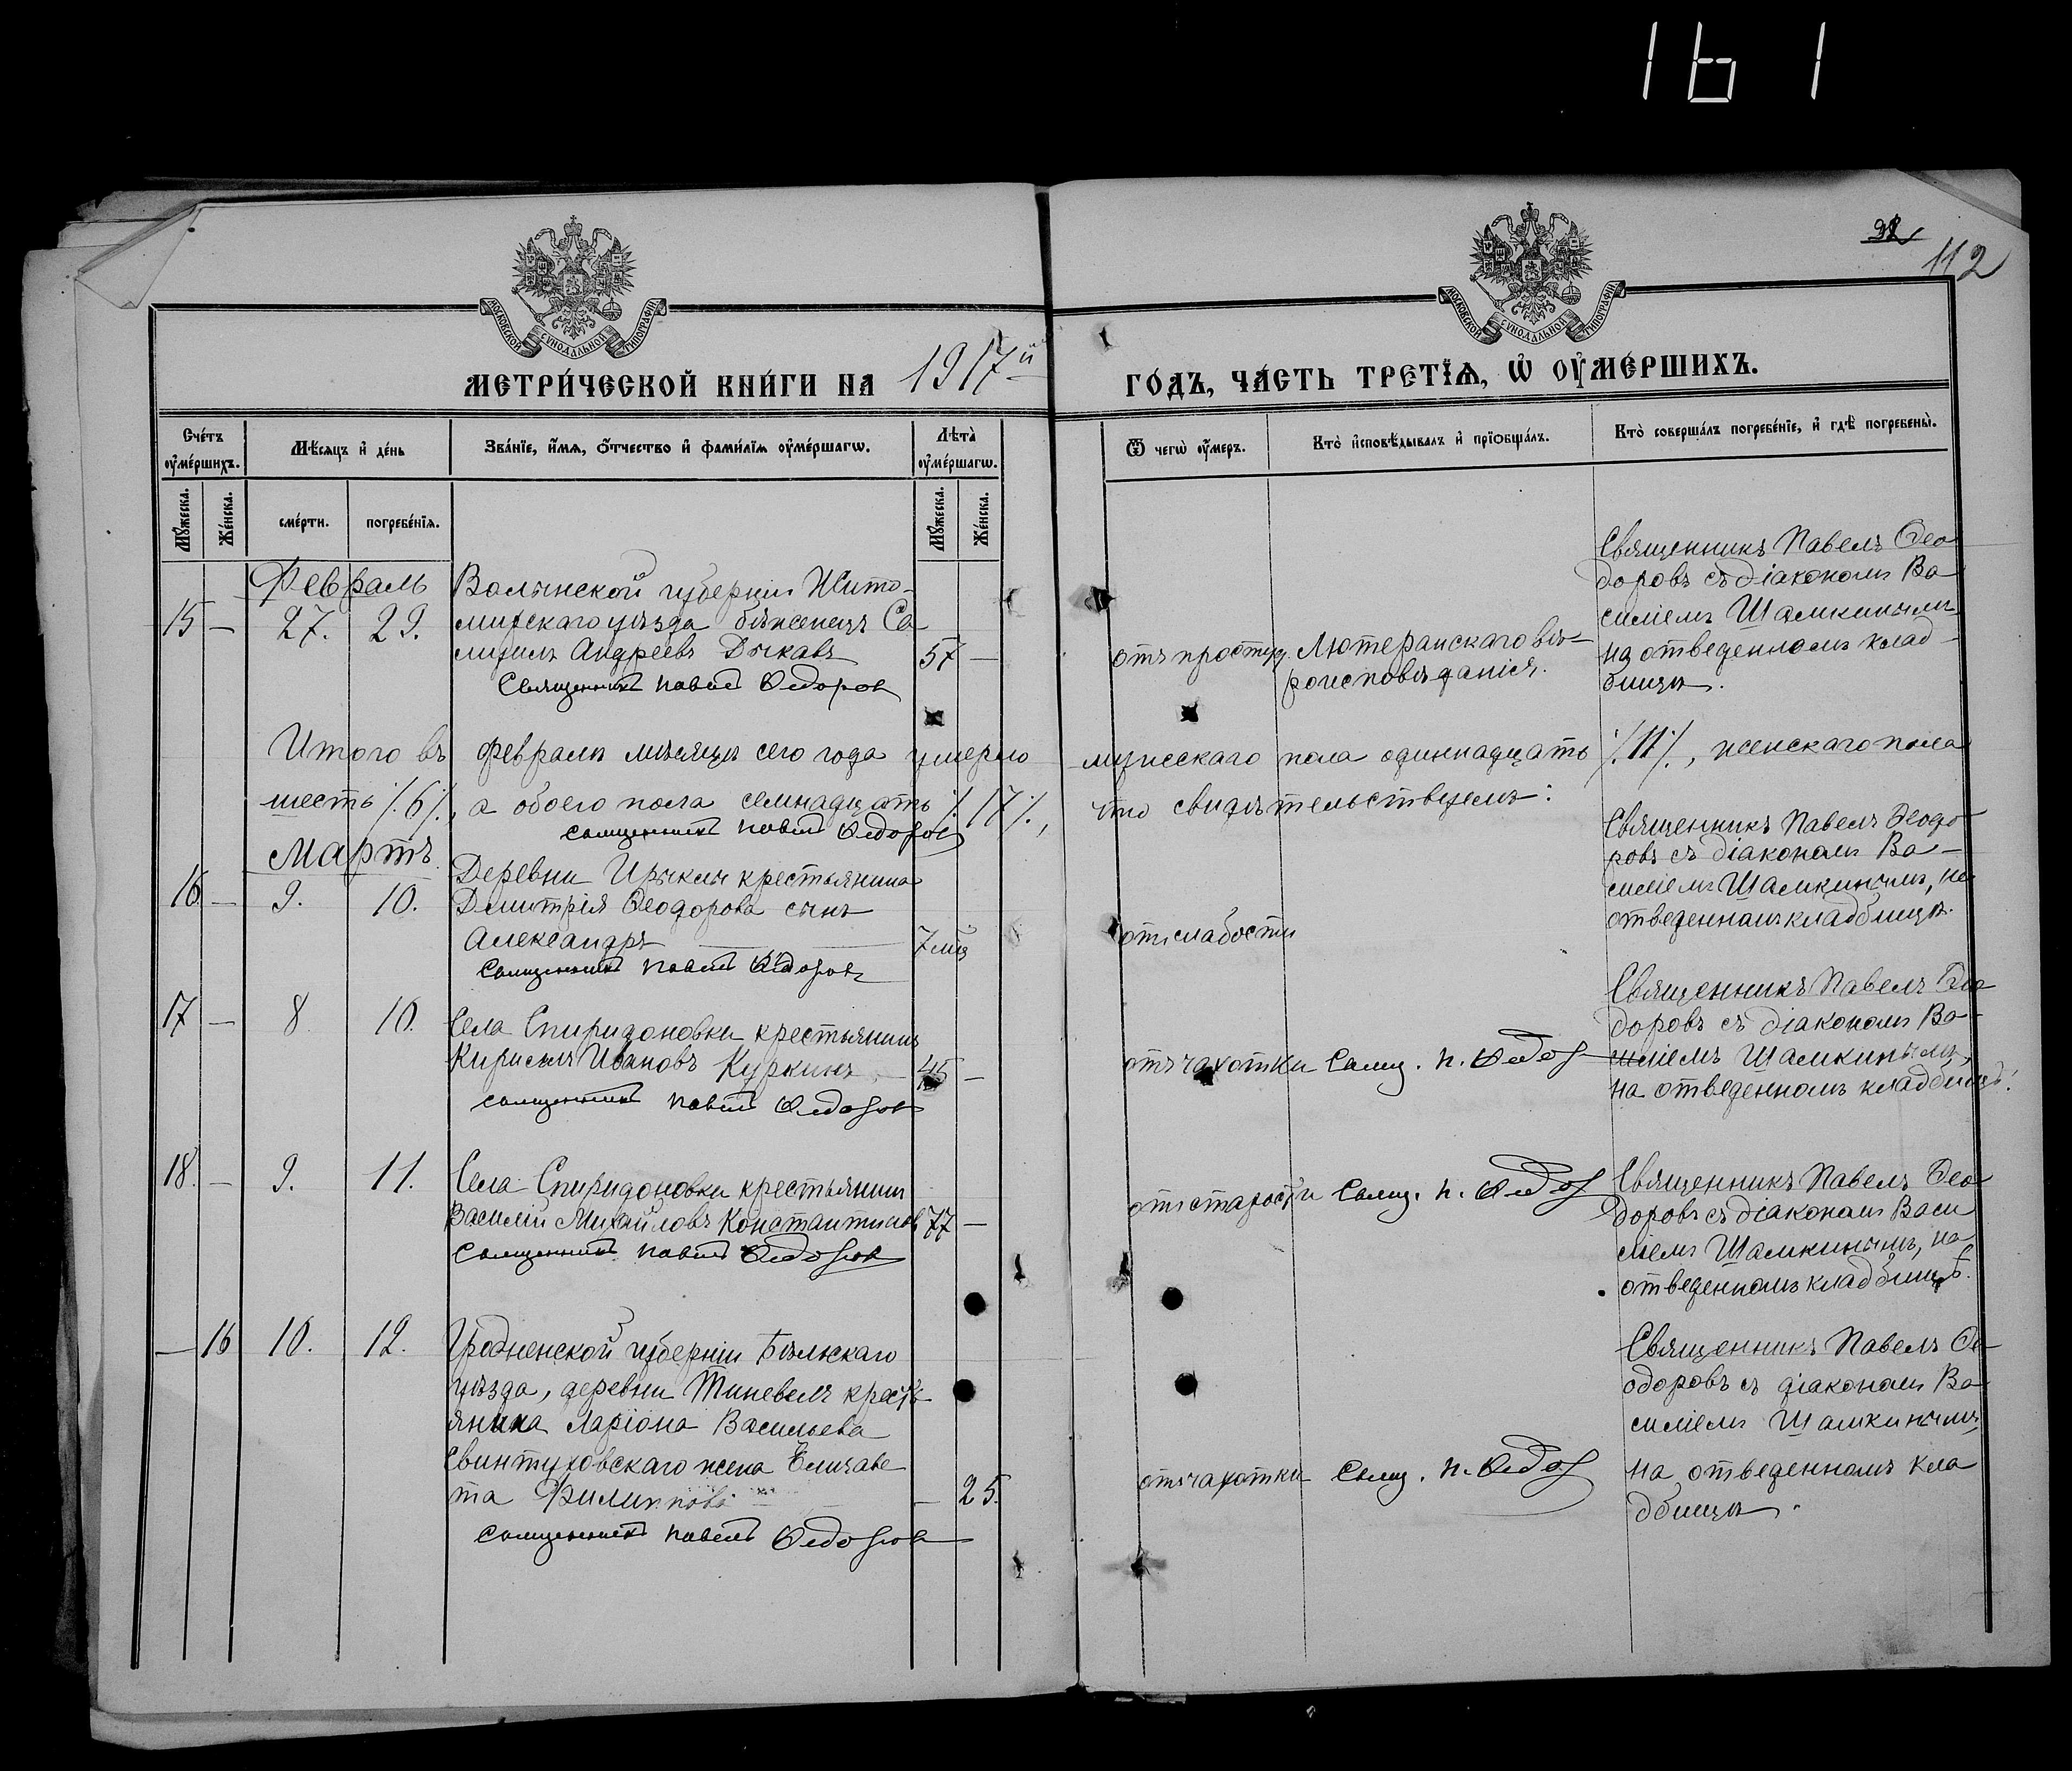 161
98
112
МОСКОВСКОЙ СѴНОДАЛЬНОЙ ТИПОГРАФІИ
МОСКОВСКОЙ СѴНОДАЛЬНОЙ ТИПОГРАФІИ
МЕТРИ́ЧЕСКОЙ КНИ́ГИ НА 1917й ГО́ДЪ, ЧА́СТЬ ТРЕ́ТІѦ, Ѡ ОУ҆МЕ́РШИХЪ.
Сче́тъ оу҆ме́ршихъ.
Мѣ́сѧцъ и҆ де́нь
Зва́нїе, и҆́мѧ, ѻ҆́тчество и҆ фами́лїѧ оу҆ме́ршагѡ.
Лѣ́та̀ оу҆ме́ршагѡ.
Ѿ чегѡ̀ оу҆́меръ.
Кто̀ и҆сповѣ́дывалъ и҆ прїѡбща́лъ.
Кто̀ соверша́лъ погребе́нїе, и҆ гдѣ̀ погребены̀.
Мꙋ́жеска.
Же́нска.
сме́рти.
погребе́нїѧ.
Мꙋ́жеска.
Же́нска.
Февраль
15 — 27. 29.
Волынской губерніи Жито-
мирскаго уѣзда бѣженецъ Са-
муилъ Андреевъ Дыкавъ 57 —
Священникъ Павелъ Федоров
отъ простуд.
Лютеранскаго вѣ-
роисповѣданія.
Священникъ Павелъ Ѳео
доровъ съ діакономъ Ва
силіемъ Шамкинымъ
на отведенномъ клад-
бищѣ.
Итого въ февралѣ мѣсяцѣ сего года умерло мужескаго пола одиннадцать /.11/., женскаго пола
шесть /.6/., а обоего пола семнадцать /.17/., что свидѣтельствуемъ:
Священникъ Павелъ Федоров
Мартъ
16 — 9. 10.
Деревни Ирыклы крестьянина
Дмитрія Ѳеодорова сынъ
Александръ 7 мц
Священникъ Павелъ Федоров
отъ слабости
Священникъ Павелъ Ѳеодо
ровъ съ діакономъ Ва-
силіемъ Шамкинымъ, на
отведенномъ кладбищѣ.
17 — 8 10.
Села Спиридоновки крестьянинъ
Кириллъ Ивановъ Куркинъ — 45 —
Священникъ Павелъ Федоров
отъ чахотки
Свящ. П. Федор
Священникъ Павелъ Ѳео
доровъ съ діакономъ Ва-
силіемъ Шамкинымъ,
на отведенномъ кладбищѣ.
18. — 9. 11.
Села Спиридоновки крестьянинъ
Василій Михайловъ Константиновъ 77 —
Священникъ Павелъ Федоров
отъ старости
Свящ. П. Федор
Священникъ Павелъ Ѳео
доровъ съ діакономъ Васи
ліемъ Шамкинымъ, на
отведенномъ кладбищѣ.
— 16 10. 12.
Гродненской губерніи Бѣльскаго
уѣзда, деревни Тиневель кресть
янина Ларіона Васильева
Свинтуховскаго жена Елизаве
та Филиппова — 25.
Священникъ Павелъ Федоров
отъ чахотки
Свящ. П. Федор
Священникъ Павелъ Ѳе-
одоровъ съ діакономъ Ва
силіемъ Шамкинымъ
на отведенномъ кла
дбищѣ.